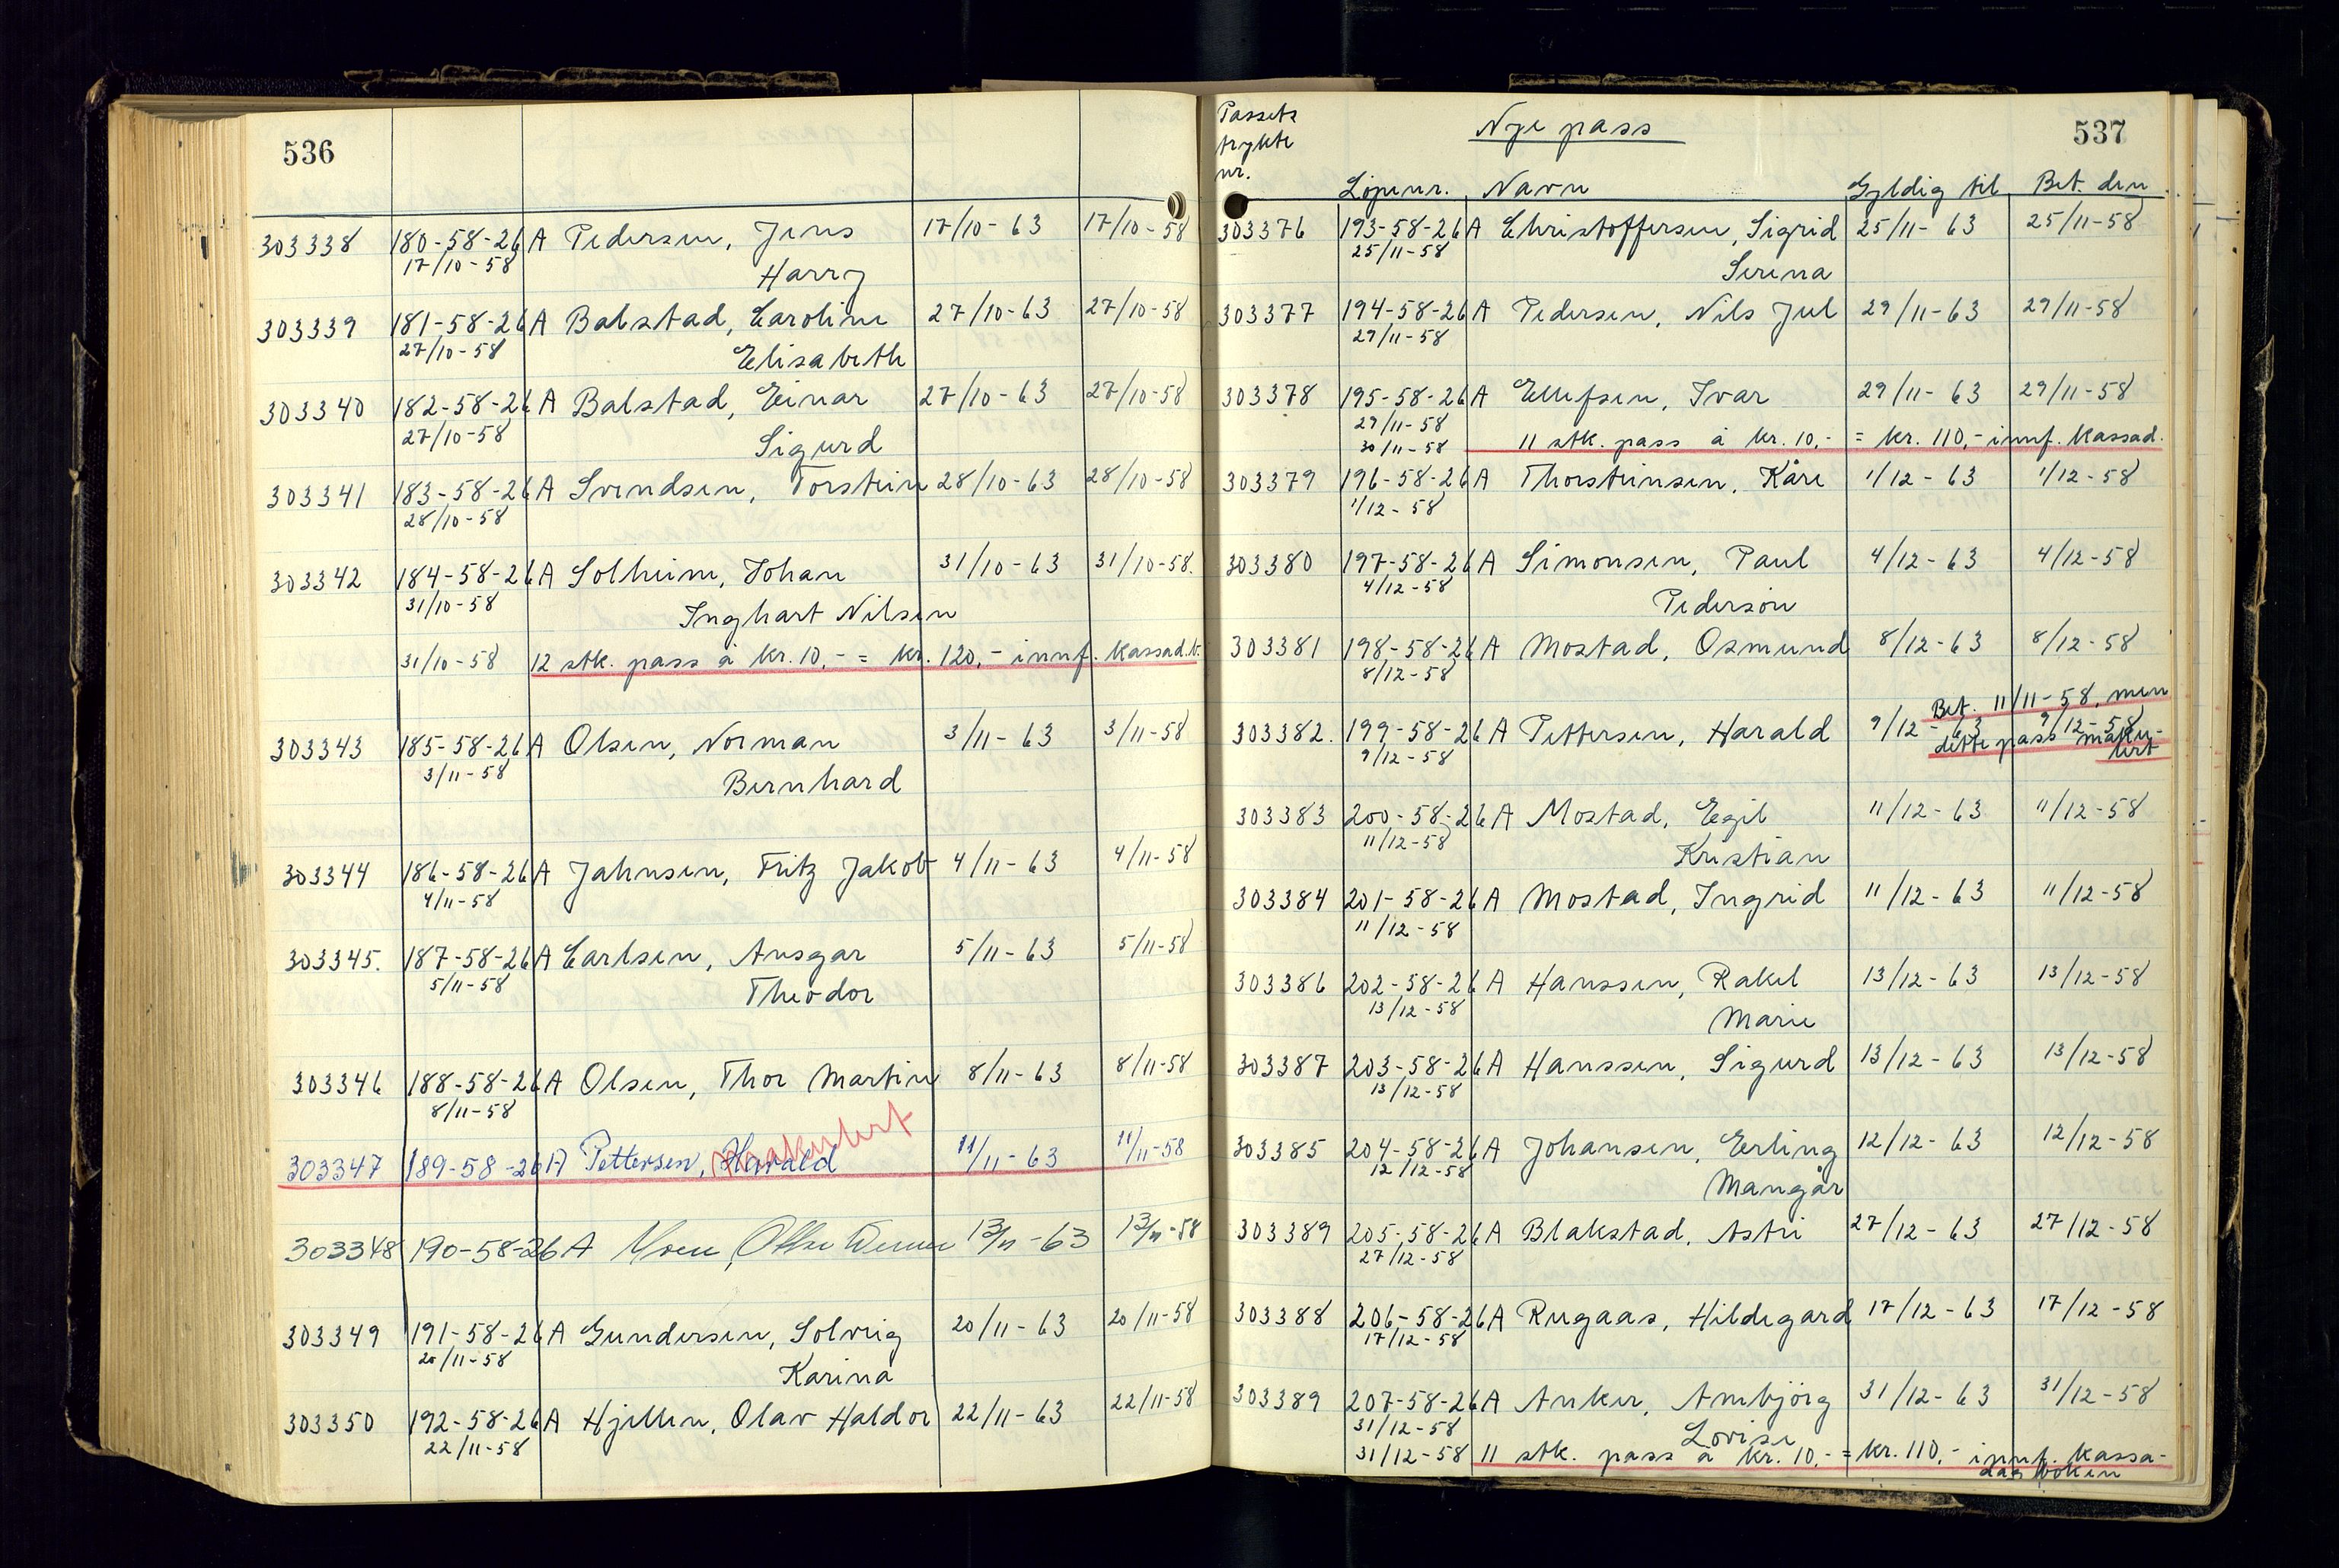 536
303338 180-58-26 A Pedersen, Jens 17/10-63 17/10-58
17/10-58 Harry
303339 181-58-26 A Balstad, Caroline 27/10-63 27/10-58
27/10-58 Elisabeth
303340 182-58-26 A Balstad, Einar 27/10-63 27/10-58
27/10-58 Sigurd
303341 183-58-26 A Svendsen, Torstein 28/10-63 28/10-58
28/10-58
303342 184-58-26 A Solheim, Johan 31/10-63 31/10-58.
31/10-58 Inghart Nilsen
31/10-58 12 stk. pass à kr. 10,- = kr. 120,- innf. kassad.b.
303343 185-58-26 A Olsen, Norman 3/11-63 3/11-58
3/11-58 Bernhard
303344 186-58-26 A Jahnsen, Fritz Jakob 4/11-63 4/11-58
4/11-58
303345. 187-58-26 A Carlsen, Ansgar 5/11-63 5/11-58
5/11-58 Theodor
303346 188-58-26 A Olsen, Thor Martin 8/11-63 8/11-58
8/11-58
makulert
303347 189-58-26 A Pettersen, Harald 11/11-63 11/11-58
303348 190-58-26 A 13/11-63 13/11-58
303349 191-58-26 A Gundersen, Solveig 20/11-63 20/11-58
20/11-58 Karina
303350 192-58-26 A Hjellen, Olav Haldor 22/11-63 22/11-58
22/11-58
Passets
trykte
nr.
Nye pass
537
Löpenr. Navn Gyldig til Bet. den
303376 193-58-26 A Christoffersen, Sigrid 25/11-63 25/11-58
25/11-58 Serina
303377 194-58-26 A Pedersen, Nils Jul 29/11-63 29/11-58
29/11-58
303378 195-58-26 A Ellefsen, Ivar 29/11-63 29/11-58
29/11-58
30/11-58 11 stk. pass à kr. 10,- = kr. 110,- innf. kassad.
303379 196-58-26 A Thorsteinsen, Kåre 1/12-63 1/12-58
1/12-58
303380 197-58-26 A Simonsen, Paul 4/12-63 4/12-58
4/12-58 Pedersön
303381 198-58-26 A Mostad, Osmund 8/12-63 8/12-58
8/12-58
Bet. 11/11-58, men
303382. 199-58-26 A Pettersen, Harald 9/12-63 9/12-58
9/12-58 dette pass maku-
lert
303383 200-58-26 A Mostad, Egil 11/12-63 11/12-58
11/12-58 Kristian
303384 201-58-26 A Mostad, Ingrid 11/12-63 11/12-58
11/12-58
303386 202-58-26 A Hanssen, Rakel 13/12-63 13/12-58
13/12-58 Marie
303387 203-58-26 A Hanssen, Sigurd 13/12-63 13/12-58
13/12-58
303385 204-58-26 A Johansen, Erling 12/12-63 12/12-58
12/12-58 Mangår
303389 205-58-26 A Blakstad, Astri 27/12-63 27/12-58
27/12-58
303388 206-58-26 A Rugaas, Hildegard 17/12-63 17/12-58
17/12-58
303389 207-58-26 A Anker, Arnbjörg 31/12-63 31/12-58
31/12-58 Lovise
31/12-58 11 stk. pass à kr. 10,- = kr. 110,- innf. kassa-
dagboken